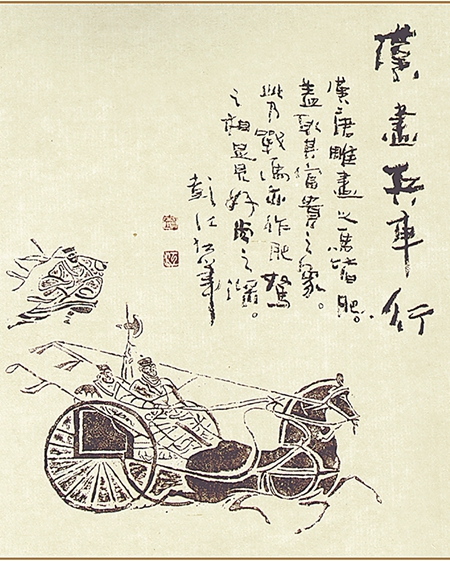 漢畫兵車行
漢唐雕畫之馬皆肥。
蓋取其富貴之象。
此乃戰馬亦作肥駑
之相足見好尚之。
江筆